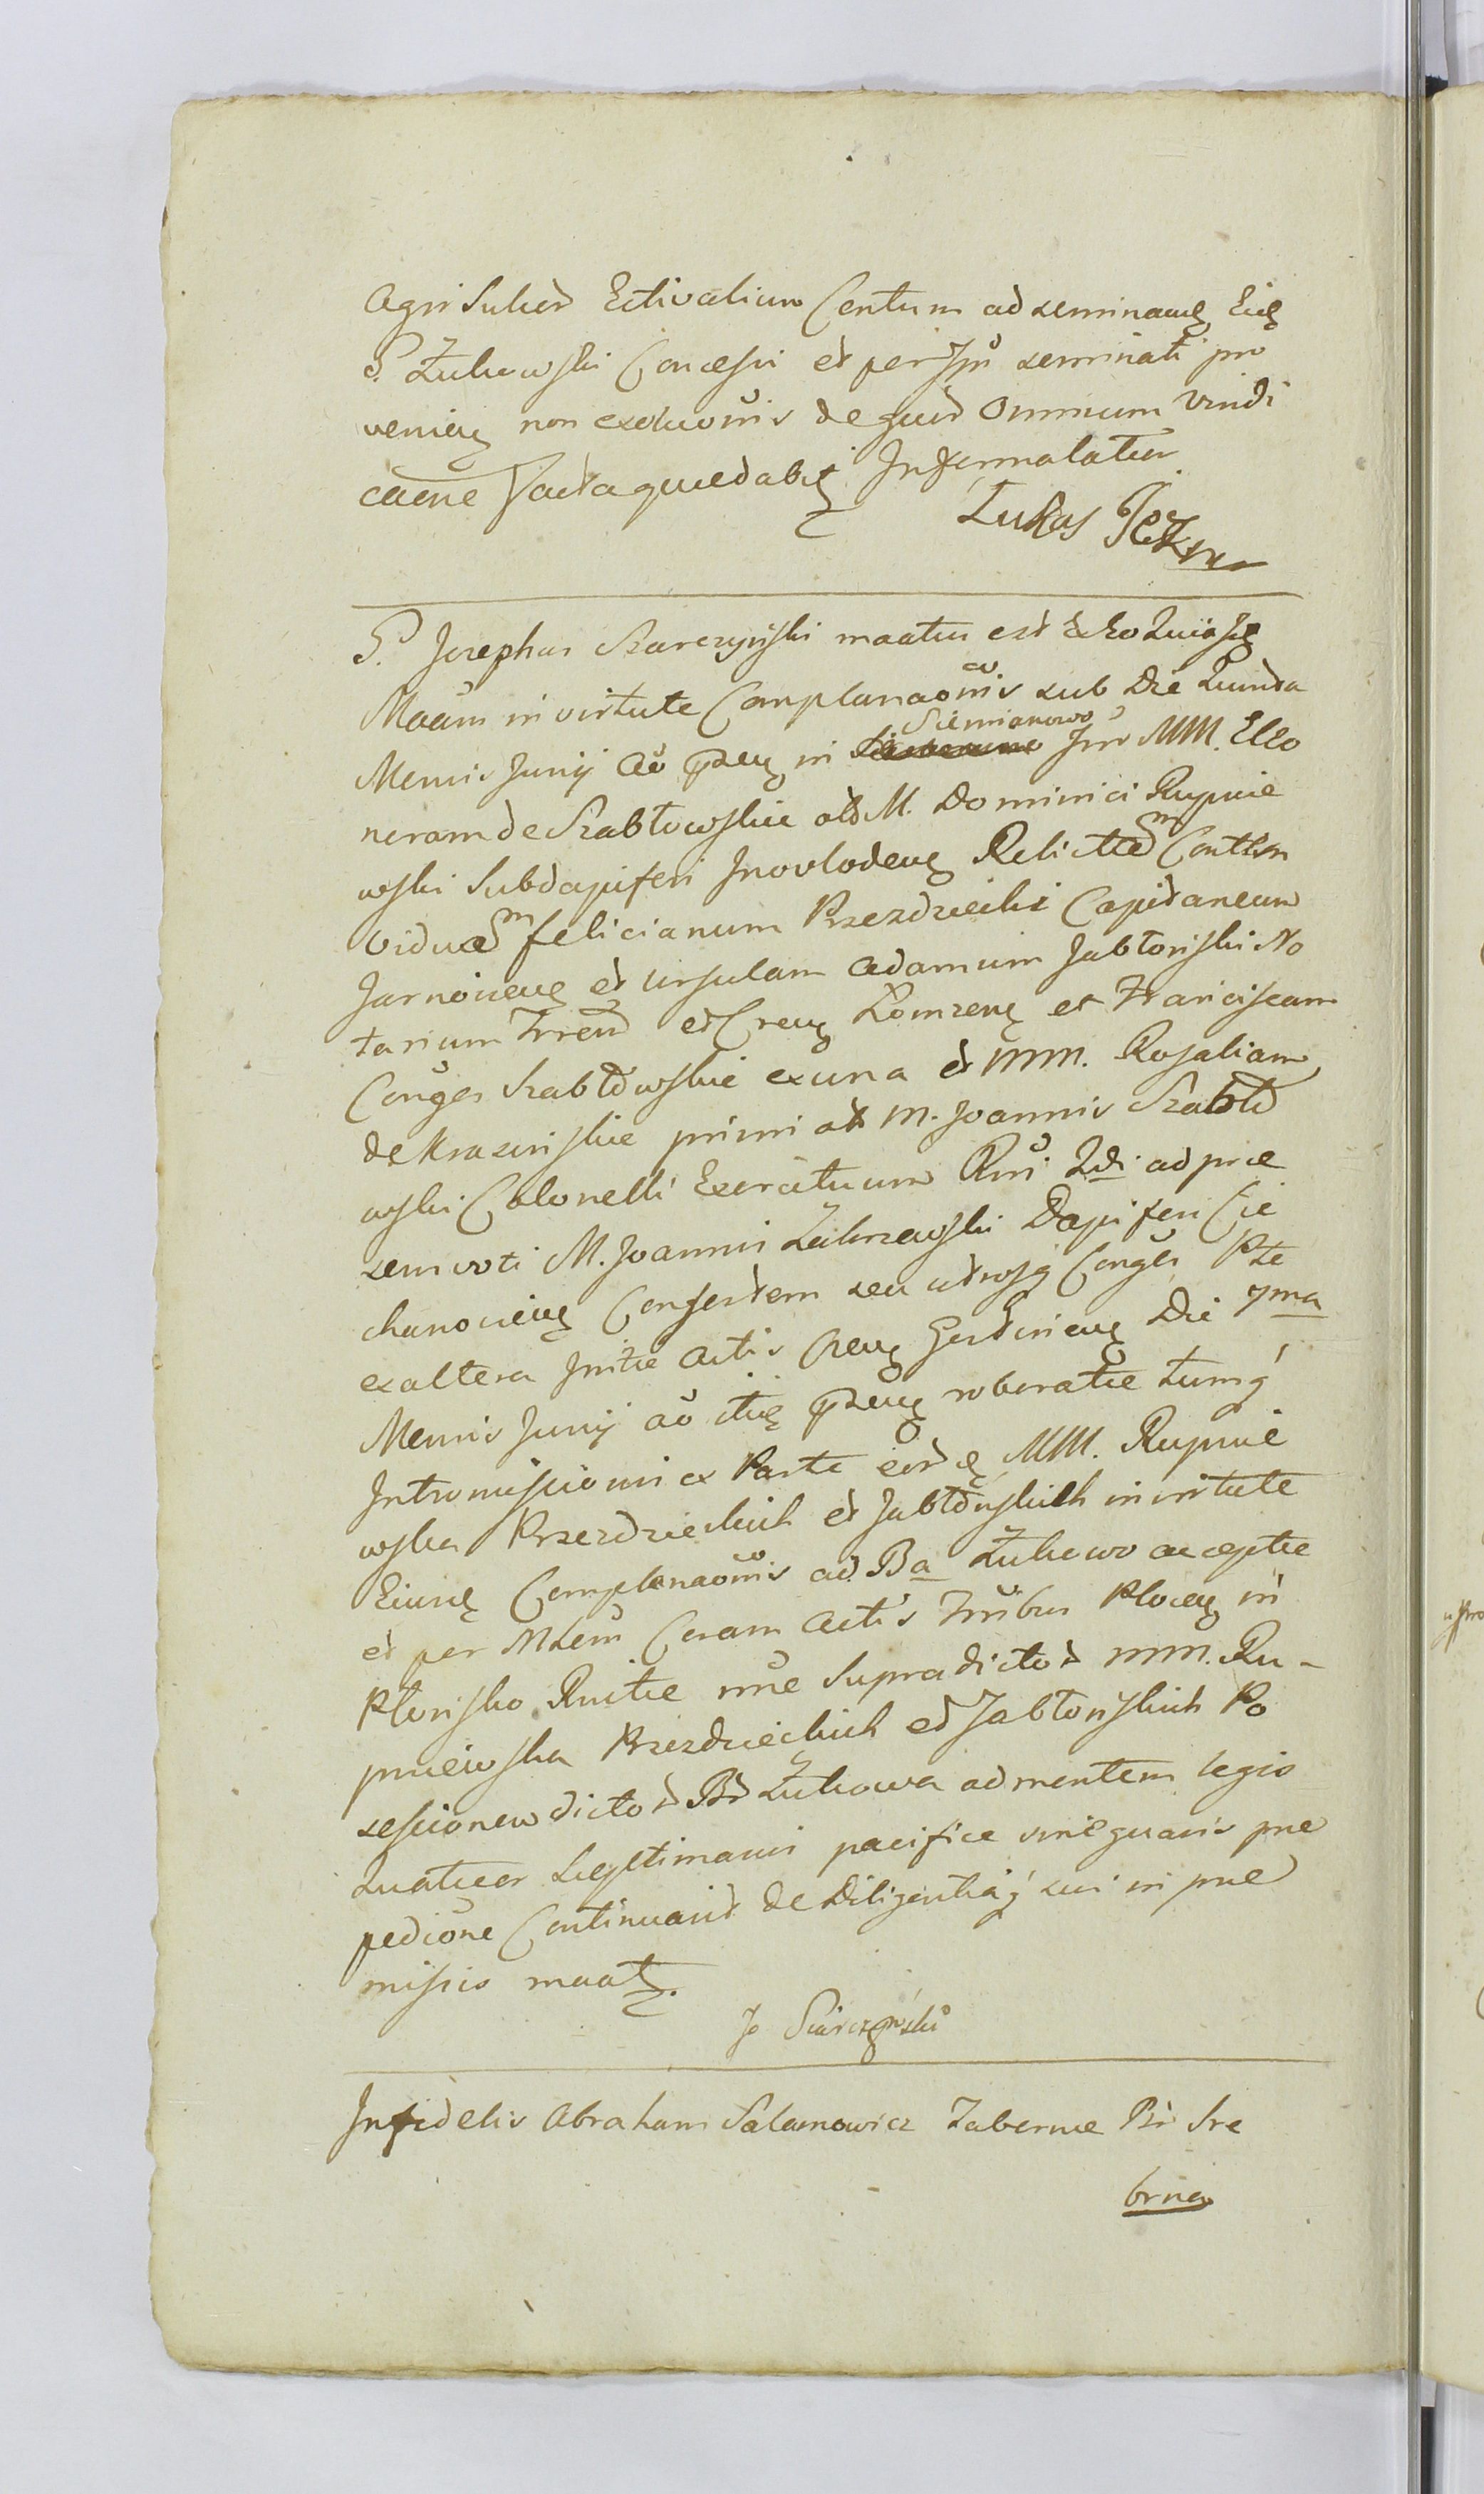 Agri Sulcor Estivalium Centum ad seminaue Eie
P. Żukowski Concessi et per Ipm seminati pro
venien non exolucōnis de quid Omnium vindi
caōne Facta quaedabit Informalatur
Łukas
P. Josephus Skarczyński maatus est
Maām in virtute Complanaōnis sub Die Quinta
Mensis Junij Aō praes in Siemianowo Inr MM. Eleo
noram de Szabłowskie olt M. Dominici Rupnie
wski Subdapiferi Inovlodens Relictam Conttem
viduam felicianum Przezdziecki Capitaneum
et Ursulam Adamum Jabłoński No
tarium Trren et Cren Łomzens et Franciscam
Conges Szabłowskie ex una et MM. Rosaliam
de Krasinskie primi olt M. Joannis Szabło
wski Colonelli Exercituum Rni 2di ad prae
sens voti M. Joannis Zakrzewski Dapiferi Cie
chanoviens Consortem seu utrosq Conges Pte
ex altera Initae Actis Crens Gostinens Die 7ma
Mensis Junij aō itid praes roboratae tumq
Intromissioni ex Parte eord MM. Rupnie
wska Przezdzieckich et Jabłonskich in virtute
Eiusd Complanaōnis ad Ba Żukowo acceptae
et per Mdem Coram Actis Trribus Plocen in
Płonsko Rnitae nne Supradictor MM. Ru-
pniewska Przezdzieckich et Jabłonskich Po
sessionem dictor Br Żukowa ad mentem legis
Quatuor Legitimavi pacifice sine quavis prae
pedione Continuavit de Diligentiaq sui in prae
missis maat.
Jo Skarczyński
Infidelis Abraham Salamowicz Tabernae Br Sre
brna